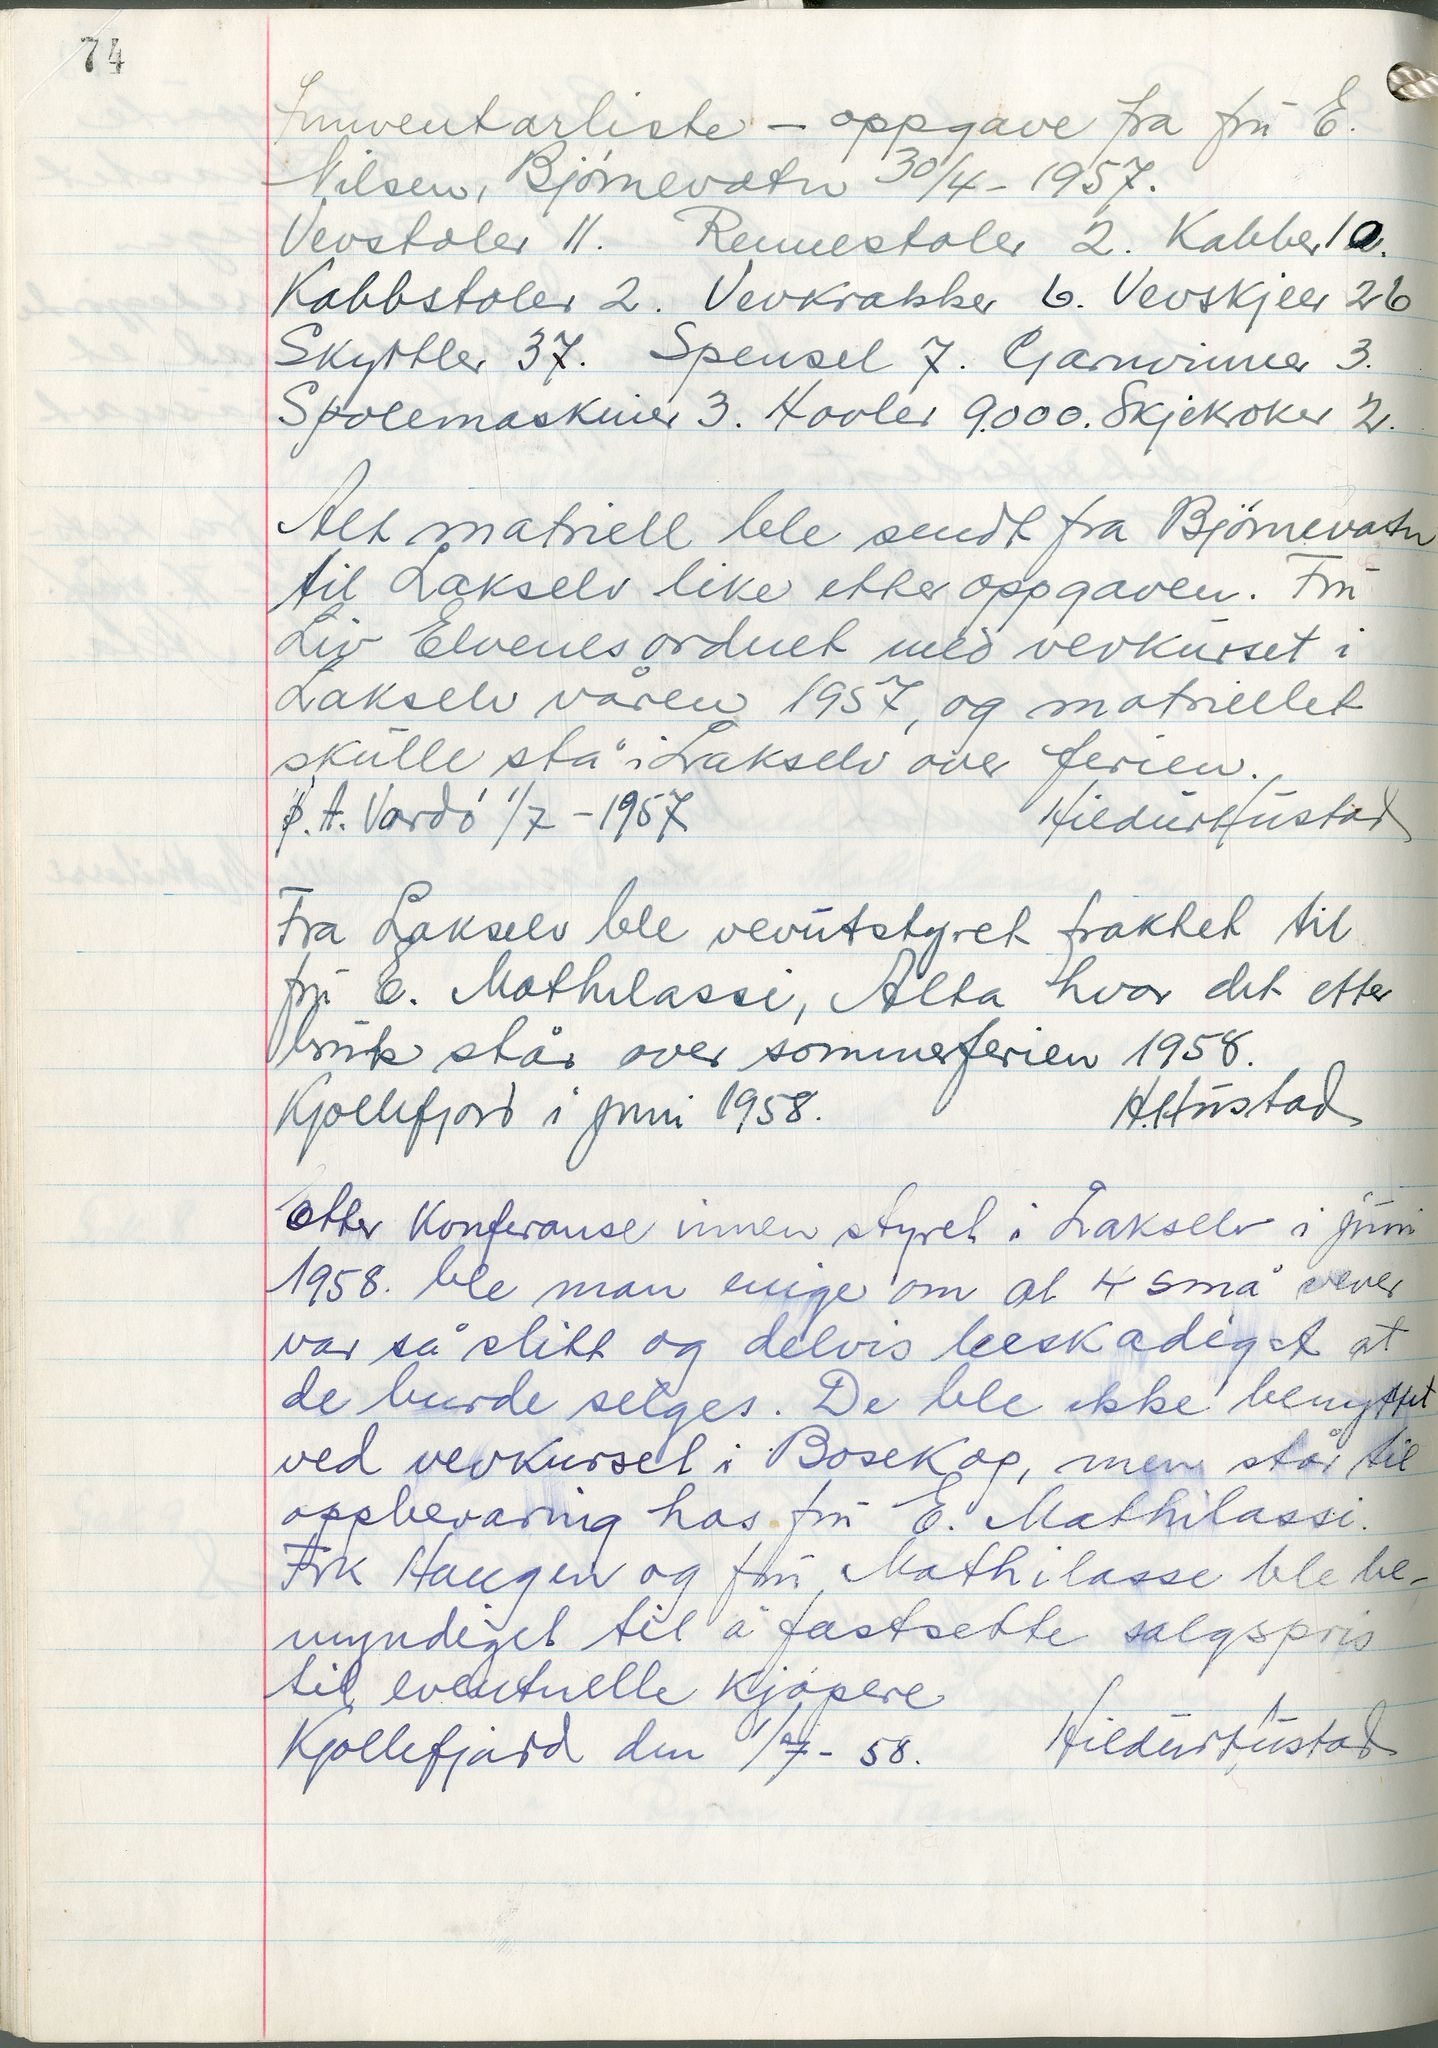 74
Innventarliste - oppgave fra frú E.
Nilsen, Bjørnevatn 30/4 - 1957.
Vevstoler 11. Rennestoler 2. Kabber 10.
Kabbstoler 2. Vevkrakker 6. Vevskjeer 26
Skyttler 37. Spensel 7. Garnvinner 3.
Spolemaskiner 3. Hovler 9.000. Skjekroker 2.
Alt matriell ble sendt fra Bjørnevatn
til Lakselv like etter oppgaven. Frú
Liv Elvenes ordnet med vevkúrset i
Lakselv våren 1957, og matriellet
skúlle stå i Lakselv over ferien.
p.t. Vardø 1/7 - 1957 Hildúr Hústad
Fra Lakselv ble vevútstyret fraktet til
frú E. Mathilassi, Alta hvor det etter
brúk står over sommerferien 1958.
Kjøllefjord i júni 1958. H. Hústad
Etter Konferanse innen styret i Lakselv i júni
1958. ble man enige om at 4 små vever
var så slitt og delvis beskadiget at
de burde selges. De ble ikke benyttet
ved vevkurset i Bosekop, men står til
oppbevaring hos frú E. Mathilassi.
Frk Haugen og frú Mathilasse ble be-
myndiget til å fastsette salgspris
til eventuelle kjøpere
Kjøllefjord den 1/7 - 58. Hildúr Hústad